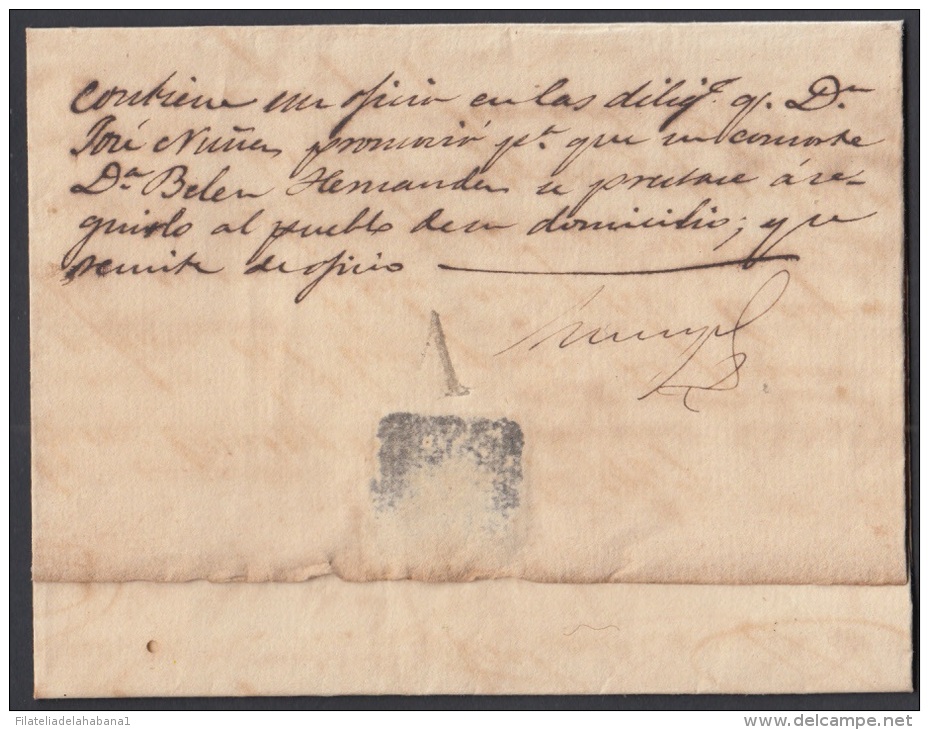 contiene un oficio en las dilig.s q.e D.n
José Nuñes promovió p.a que su consorte
D.a Belen Hernandes se prestase á se-
guirlo al pueblo de su domicilio; y se
remite de oficio
A
Filateliadelahabana1
www.delcampe.net